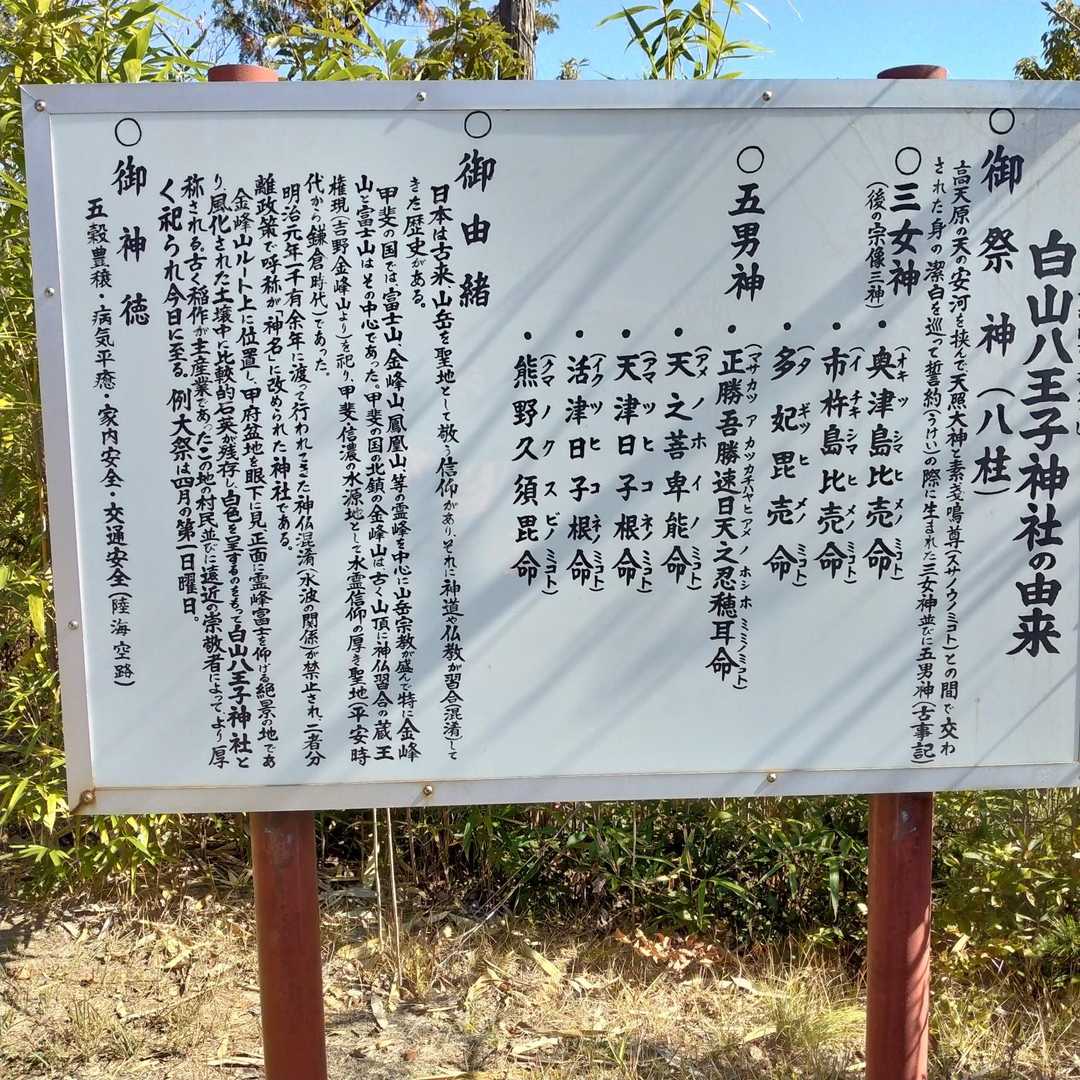 白山八王子神社の由来
○御祭神(八柱)
高天原の天の安河を挟んで天照大神と素戔嗚尊(スサノウノミコト)との間で交わ
された身の潔白を巡って誓約(うけい)の際に生まれた三女神並びに五男神(古事記)
○三女神
(後の宗像三神)
・奥津島比売命
(オキツシマヒメノミコト)
・市杵島比売命
(イチキシマヒメノミコト)
・多妃毘売命
(タギツヒメノミコト)
○五男神
・正勝吾勝速日天之忍穂耳命
(マサカツアカツカチハヤヒアメノホシホミミノミコト)
・天之菩卑能命
(アメノホイノミコト)
・天津日子根命
(アマツヒコネノミコト)
・活津日子根命
(イクツヒコネノミコト)
・熊野久須毘命
(クマノクスビノミコト)
○御由緒
日本は古来山岳を聖地として敬う信仰があり、それに神道や仏教が習合(混淆)して
きた歴史がある。
甲斐の国では富士山、金峰山、鳳凰山、等の霊峰を中心に山岳宗教が盛んで特に金峰
山と富士山はその中心であった。甲斐の国の北鎮の金峰山は古く山頂に神仏習合の蔵王
権現(吉野金峰山より)を祀り、甲斐・信濃の水源地として水霊信仰の厚き聖地(平安時
代から鎌倉時代)であった。
明治元年一千有余年に渡って行われてきた神仏混淆(水波の関係)が禁止され、二者分
離政策で呼称が「神名」に改められた神社である。
金峰山ルート上に位置し、甲府盆地を眼下に見、正面に霊峰富士を仰げる絶景の地であ
り、風化された土壌中に比較的石英が残存し、白色を呈するのをもって白山八王子神社と
称される。古く稲作が主産業であったこの地の村民並びに遠近の崇敬者によって、より厚
く祀られ今日に至る。例大祭は四月の第一日曜日。
○御神徳
五穀豊穣・病気平癒・家内安全・交通安全(陸海空路)